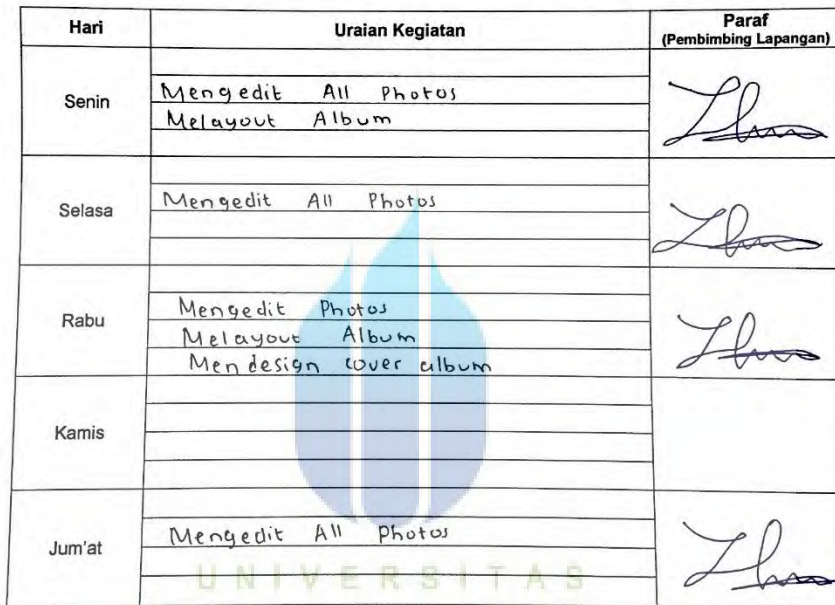 Hari Uraian Kegiatan Paraf
(Pembimbing Lapangan)
Senin
Mengedit All Photos
Melayout Album
Selasa
Mengedit All Photos
Rabu
Mengedit Photos
Melayout Album
Mendesign cover album
Kamis
Jum'at
Mengedit All Photos
UNIVERSITAS